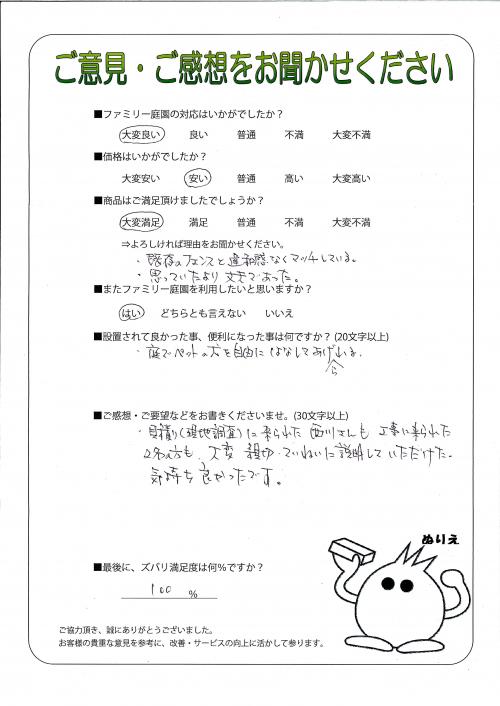 ご意見・ご感想をお聞かせください
■ファミリー庭園の対応はいかがでしたか？
大変良い 良い 普通 不満 大変不満
■価格はいかがでしたか？
大変安い 安い 普通 高い 大変高い
■商品はご満足頂けましたでしょうか？
大変満足 満足 普通 不満 大変不満
⇒よろしければ理由をお聞かせください。
・既存のフェンスと違和感なくマッチしている。
・思っていたより丈夫であった。
■またファミリー庭園を利用したいと思いますか？
はい どちらとも言えない いいえ
■設置されて良かった事、便利になった事は何ですか？(20文字以上)
・庭でペットの犬を自由にはなしてあげられる。
■ご感想・ご要望などをお書きくださいませ。(30文字以上)
・見積り(現地調査)に来られた西川さんも工事に来られた
2名の方も、大変親切、ていねいに説明していただけた。
気持ち良かったです。
ぬりえ
■最後に、ズバリ満足度は何%ですか？
100 %
ご協力頂き、誠にありがとうございました。
お客様の貴重な意見を参考に、改善・サービスの向上に活かして参ります。